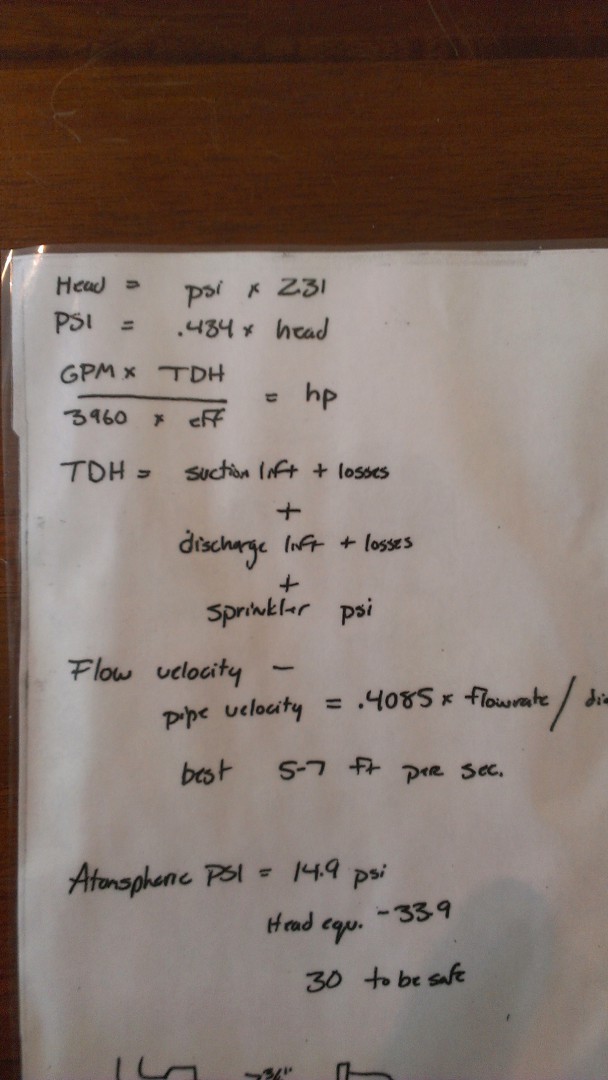 Head = psi x 231
PSI = .434 x head
GPM x TDH
3960 x eff
= hp
TDH = suction lift + losses
+
discharge lift + losses
+
sprinkler psi
Flow velocity -
pipe velocity = .4085 x flowrate / dia
best 5-7 ft per sec.
Atomspheric PSI = 14.9 psi
Head equ. - 33.9
30 to be safe